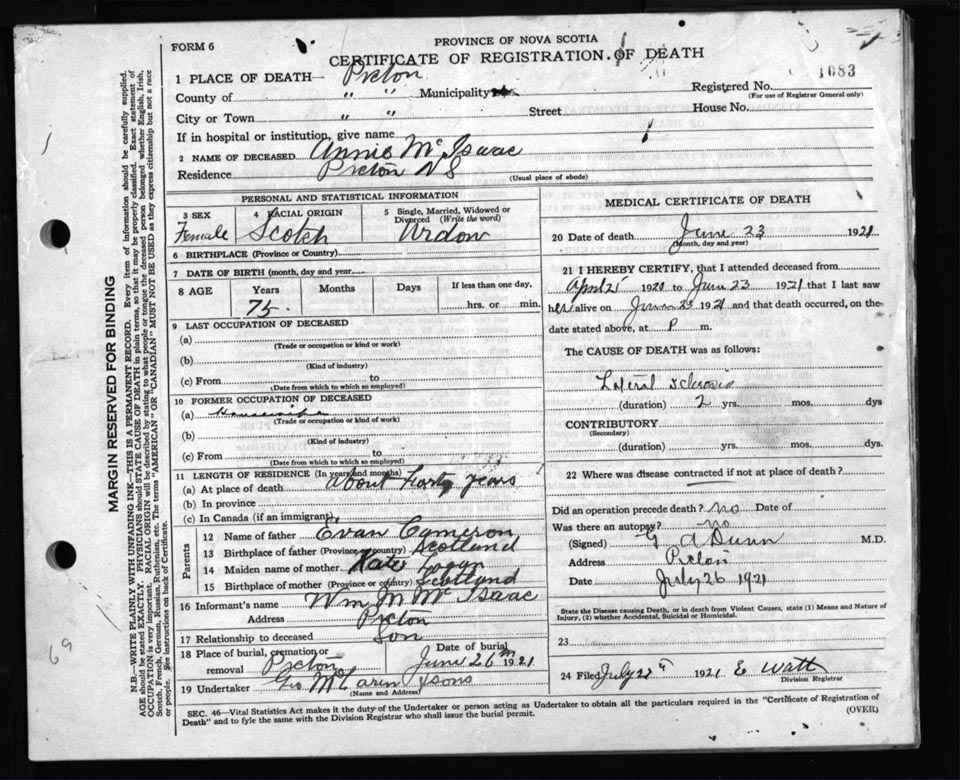 FORM 6
PROVINCE OF NOVA SCOTIA
CERTIFICATE OF REGISTRATION OF DEATH
1083
1 PLACE OF DEATH— Pictou
County of " " Municipality
Registered No.
(For use of Registrar General only)
City or Town " " Street House No.
If in hospital or institution, give name
2 NAME OF DECEASED Annie McIsaac
Residence Pictou N S
(Usual place of abode)
PERSONAL AND STATISTICAL INFORMATION
3 SEX Female
4 RACIAL ORIGIN Scotch
5 Single, Married, Widowed or Divorced (Write the word) Widow
6 BIRTHPLACE (Province or Country)
7 DATE OF BIRTH (month, day and year
8 AGE Years Months Days If less than one day,
75. hrs. or min.
9 LAST OCCUPATION OF DECEASED
(a)
(Trade or occupation or kind or work)
(b)
(Kind of industry)
(c) From to
(Date from which to which so employed)
10 FORMER OCCUPATION OF DECEASED
(a) Housewife
(Trade or occupation or kind of work)
(b)
(Kind of industry)
(c) From to
(Date from which to which so employed)
11 LENGTH OF RESIDENCE (In years and months)
(a) At place of death About Forty years
(b) In province
(c) In Canada (if an immigrant)
Parents
12 Name of father Evan Cameron
13 Birthplace of father (Province or country) Scotland
14 Maiden name of mother Kate Logan
15 Birthplace of mother (Province or country) Scotland
16 Informant's name Wm M McIsaac
Address Pictou
17 Relationship to deceased Son
18 Place of burial, cremation or removal Pictou
Date of burial June 26th 1921
19 Undertaker Geo McLaren & Sons
(Name and Address)
MEDICAL CERTIFICATE OF DEATH
20 Date of death June 23 1921
(Month, day and year)
21 I HEREBY CERTIFY, that I attended deceased from
April 25 1920 to June 23 1921 that I last saw
her alive on June 23 1921 and that death occurred, on the
date stated above, at P m.
The CAUSE OF DEATH was as follows:
Lateral Sclerosis
(duration) 2 yrs. mos. dys
CONTRIBUTORY
(Secondary)
(duration) yrs. mos. dys.
22 Where was disease contracted if not at place of death?
Did an operation precede death? no Date of
Was there an autopsy? no
(Signed) G A Dunn M.D.
Address Pictou
Date July 26 1921
State the Disease causing Death, or in death from Violent Causes, state (1) Means and Nature of
Injury, (2) whether Accidental, Suicidal or Homicidal.
23
24 Filed July 1921 E Watt
Division Registrar
SEC. 46—Vital Statistics Act makes it the duty of the Undertaker or person acting as Undertaker to obtain all the particulars required in the "Certificate of Registration of
Death" and to fyle the same with the Division Registrar who shall issue the burial permit.
(OVER)
MARGIN RESERVED FOR BINDING
N.B.—WRITE PLAINLY WITH UNFADING INK—THIS IS A PERMANENT RECORD. Every item of information should be carefully supplied.
AGE should be stated EXACTLY. PHYSICIANS should STATE CAUSE OF DEATH in plain terms, so that it may be properly classified. Exact statement of
OCCUPATION is very important. RACIAL ORIGIN will be described by stating to what people or tongue the deceased person belonged whether English, Irish,
Scotch, French, German, Russian, Ruthenian, etc. The terms "AMERICAN" OR "CANADIAN" MUST NOT BE USED as they express citizenship but not a race
or people. See instructions on back of Certificate.
69